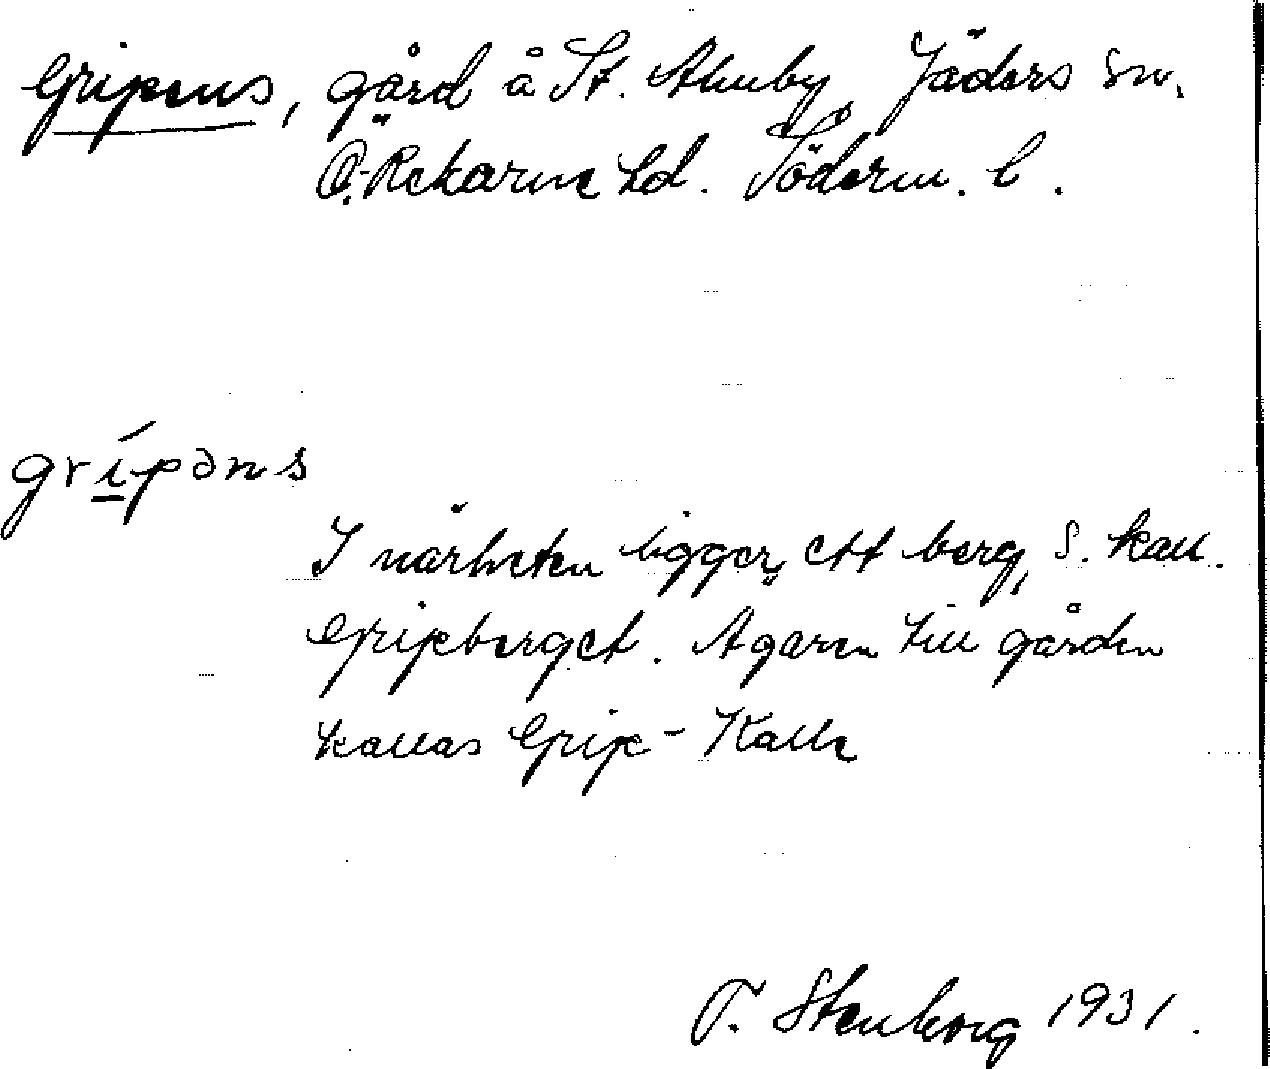 Gripens, gård å St. Åhuby, Jäders sn.
Ö. Rekarne hd. Söderm. l.
grípəns
I närheten ligger ett berg, s. kall.
Gripberget. Ägaren till gården
kallas Grip-Kalle
T. Stenborg 1931.